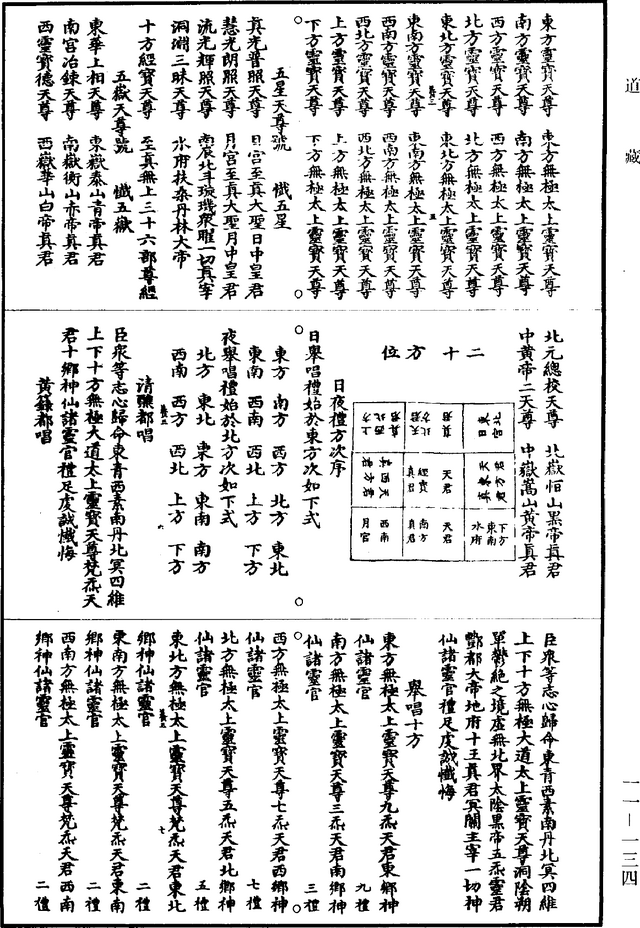 道藏
東方靈寶天尊　東方無極太上靈寶天尊
南方靈寶天尊　南方無極太上靈寶天尊
西方靈寶天尊　西方無極太上靈寶天尊
北方靈寶天尊　北方無極太上靈寶天尊
東北方靈寶天尊　東北方無極太上靈寶天尊
東南方靈寶天尊　東南方無極太上靈寶天尊
西南方靈寶天尊　西南方無極太上靈寶天尊
西北方靈寶天尊　西北方無極太上靈寶天尊
上方靈寶天尊　上方無極太上靈寶天尊
下方靈寶天尊　下方無極太上靈寶天尊
五星天尊號　懺五星
真光普照天尊　日宮至真大聖日中皇君
慧光朗照天尊　月宮至真大聖月中皇君
流光輝照天尊　南辰北斗璇璣衆曜一切真宰
洞淵三昧天尊　水府扶桑丹林大帝
十方經寶天尊　至真無上三十六部尊經
五嶽天尊號　懺五嶽
東華上相天尊　東嶽泰山青帝真君
南宮冶鍊天尊　南嶽衡山赤帝真君
西靈寶德天尊　西嶽華山白帝真君
北元總校天尊　北嶽恒山黑帝真君
中黃帝二天尊　中嶽嵩山黃帝真君
二十方位
下方　東南　水府
天君
南方　真君
西南　月宮
天君
經寶　真君
日夜禮方次序
日舉唱禮始於東方次如下式
東方　南方　西方　北方　東北
東南　西南　西北　上方　下方
夜舉唱禮始於北方次如下式
北方　東北　東方　東南　南方
西南　西方　西北　上方　下方
清醮都唱
臣衆等志心歸命東青西素南丹北冥四維
上下十方無極大道太上靈寶天尊梵炁天
君十鄉神仙諸靈官禮足虔誠懺悔
黃籙都唱
臣衆等志心歸命東青西素南丹北冥四維
上下十方無極大道太上靈寶天尊洞陰朔
單鬱絕之境虛無北界太陰黑帝五炁靈君
酆都大帝地府十王真君冥關主宰一切神
仙諸靈官禮足虔誠懺悔
舉唱十方
東方無極太上靈寶天尊九炁天君東鄉神
仙諸靈官　九禮
南方無極太上靈寶天尊三炁天君南鄉神
仙諸靈官　三禮
西方無極太上靈寶天尊七炁天君西鄉神
仙諸靈官　七禮
北方無極太上靈寶天尊五炁天君北鄉神
仙諸靈官　五禮
東北方無極太上靈寶天尊梵炁天君東北
鄉神仙諸靈官　二禮
東南方無極太上靈寶天尊梵炁天君東南
鄉神仙諸靈官　二禮
西南方無極太上靈寶天尊梵炁天君西南
鄉神仙諸靈官　二禮
一一—一三四